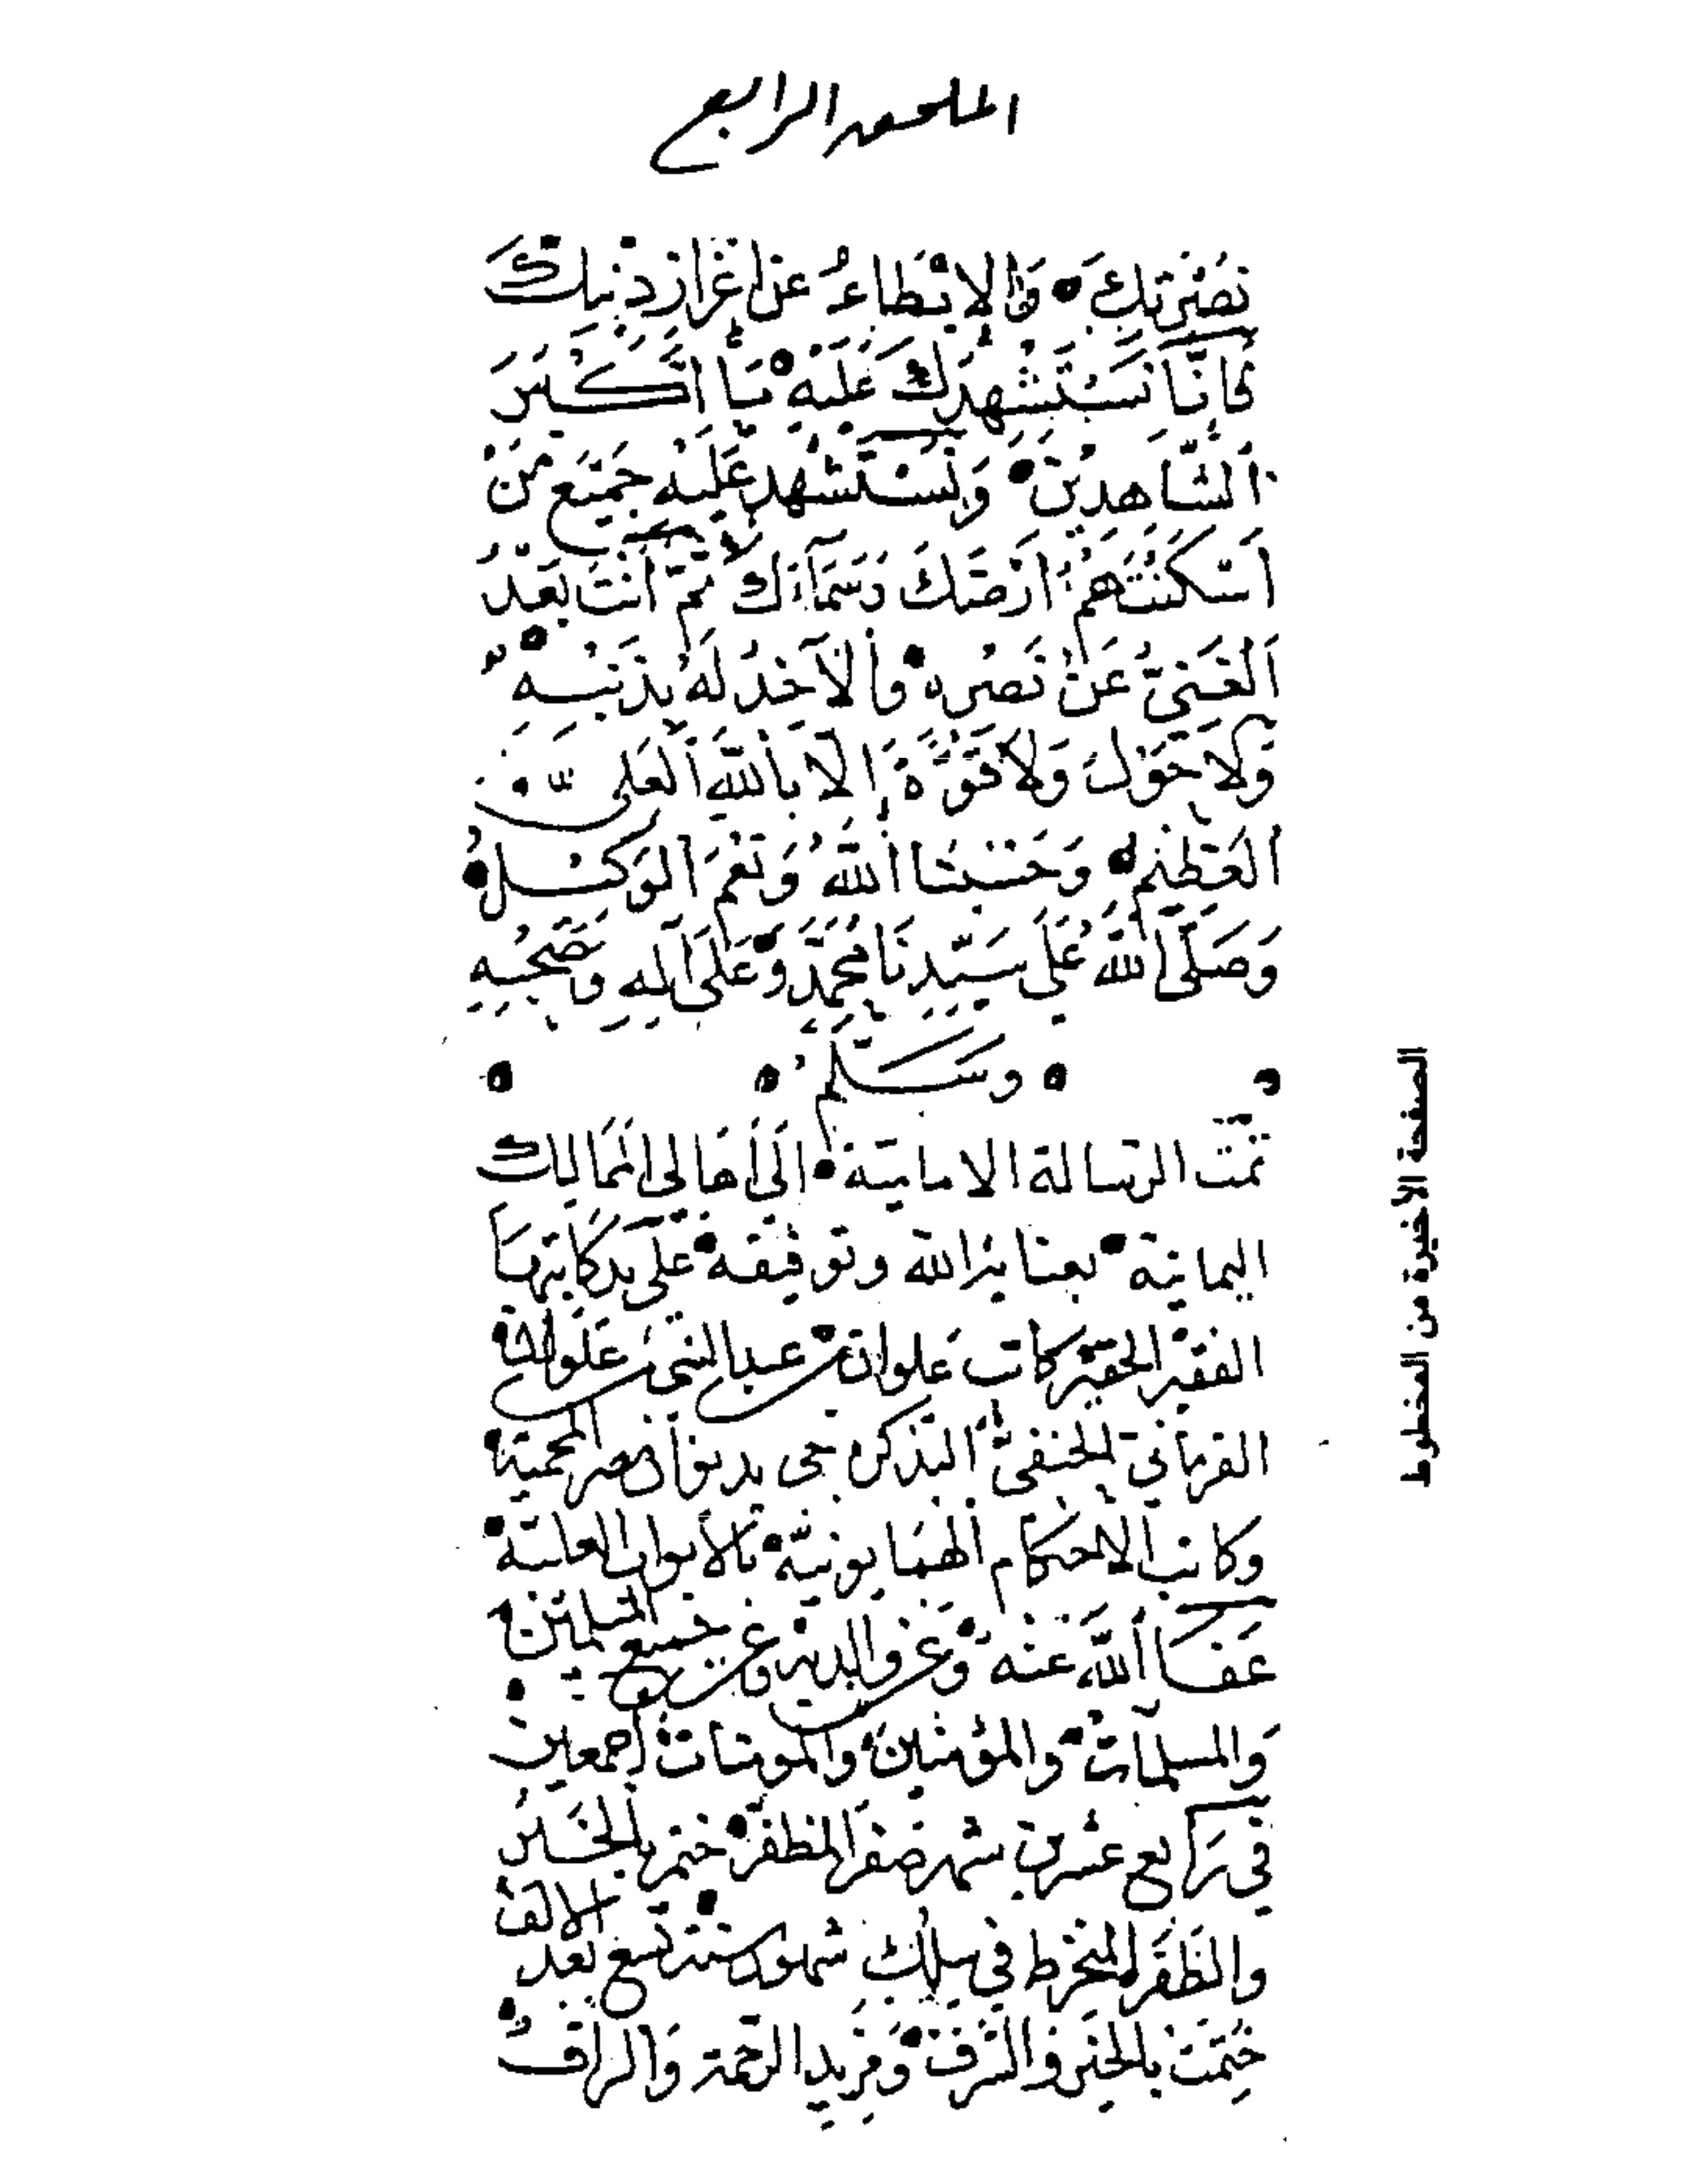 الملحق الرابع
نُصْرَتِكَ • وَالْاِبْطَاءُ عَنْ اِعْزَازِ دِينِكَ
فَاِنَّا نَسْتَشْهِدُكَ عَلَيْهِ يَا اَكْبَرَ
اَلشَّاهِدِيْنَ • وَنَسْتَشْهِدُ عَلَيْهِ جَمِيْعَ مَنْ
اَسْكَنْتَهُمْ اَرْضَكَ وَسَمَآءَكَ ثُمَّ اَنْتَ بَعْدُ
اَلْغَنِيُّ عَنْ نَصْرِهِ • وَالْآخِذُ لَهُ بِذَنْبِهِ •
وَلَا حَوْلَ وَلَا قُوَّةَ اِلَّا بِاللّٰهِ الْعَلِىِّ
الْعَظِيْمِ • وَحَسْبُنَا اللّٰهُ وَنِعْمَ الْوَكِيْلُ •
وَصَلَّى اللّٰهُ عَلَى سَيِّدِنَا مُحَمَّدٍ وَعَلَى آلِهِ وَصَحْبِهِ
• وَسَلَّمَ • •
تمّت الرسالة الامانيّة • اِلَى اَهَالِى الْمَمَالِك
اليمانية • بعناية الله وتوفيقه • على يد كاتبها
الفقير الحقير كاتب علوان بن عبد النبى بن علوان
القرمانى الحنفى التذكره جى بديوان مصر المحمية •
وكاتب الاحكام الهمايونيّة • بالابواب العليّة •
عَفَا اللّٰهُ عَنْهُ وَعَن والديه وعن جميع المسلمين •
وَالمسلمات • والمؤمنين • والمومنات اجمعين
فى رابع عشرين شهر صفر المظفر • ختم بالخير
والظفر المنخرط فى سلك شهور سنة تسع بعد الالف •
خُتِمَتْ بالخير والشرف • وَمَزِيد الرحمة وَالرافه
الصفحة الأخيرة من المخطوط